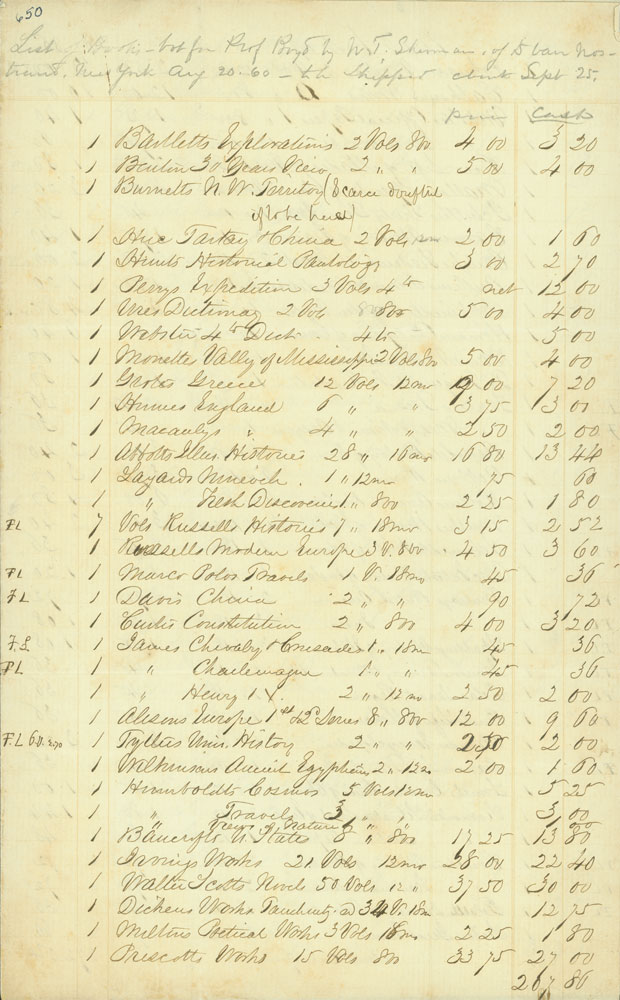 650
List of Books - bot for Prof Boyd by W.T. Sherman, of D Van Nos-
trand, New York Aug 20. 60 - to be Shipped about Sept 25.
price Cash
1 Bartletts Explorations 2 Vols 8vo 4 00 3 20
1 Benton 30 Years View 2 " " 5 00 4 00
1 Burnetts N. W. Territory (Scarce doubtful
if to be had)
1 Huc Tartary & China 2 Vols 2 00 1 60
1 Hunts Historical 3 00 2 70
1 Perrys Expedition 3 Vols 4to net 12 00
1 Ures Dictionary 2 Vols 8vo 5 00 4 00
1 Webster 4to Dict. 4to 5 00
1 Monette Valley of Mississippi 2 Vols 8vo 5 00 4 00
1 Grotes Greece 12 Vols 12mo 9 00 7 20
1 Humes England 6 " " 3 75 3 00
1 Macaulys " 4 " " 2 50 2 00
1 Abbotts Illus. Histories 28 " 16mo 16 80 13 44
1 Layards Nineveh . 1 " 12mo 75 60
1 " Fresh Discoveries 1 " 8vo 2 25 1 80
FL 7 Vols Russells Histories 7 " 18mo 3 15 2 52
1 Russells Modern Europe 3 V. 8vo 4 50 3 60
FL 1 Marco Polos Travels 1 V. 18mo 45 36
FL 1 Davis China 2 " " 90 72
1 Curtis Constitution 2 " 8vo 4 00 3 20
F.L 1 James Chivalry & Crusades 1 " 18mo 45 36
FL 1 " Charlemagne 1 " " 45 36
1 " Henry IV. 2 " 12mo 2 50 2 00
1 Alisons Europe 1st & 2d Series 8 " 8vo 12 00 9 60
F.L 1 Tytlers Univ. History 2 " " 2 50 2 00
1 Wilkinsons Ancient Egyptians 2 " 12mo 2 00 1 60
1 Humboldts Cosmos 5 Vols 12mo 5 25
1 " Travels 3 " " 3 00
Views of Nature 1
1 Bancrofts U States 8 " 8vo 17 25 13 80
1 Irvings Works 21 Vols 12mo 28 00 22 40
1 Walter Scotts Novels 50 Vols 12 " 37 50 30 00
1 Dickens Works Tauchnitz ed 34 V. 18mo 12 75
1 Miltons Poetical Works 3 Vols 18mo 2 25 1 80
1 Prescotts Works 15 Vols 8vo 33 75 27 00
267 86